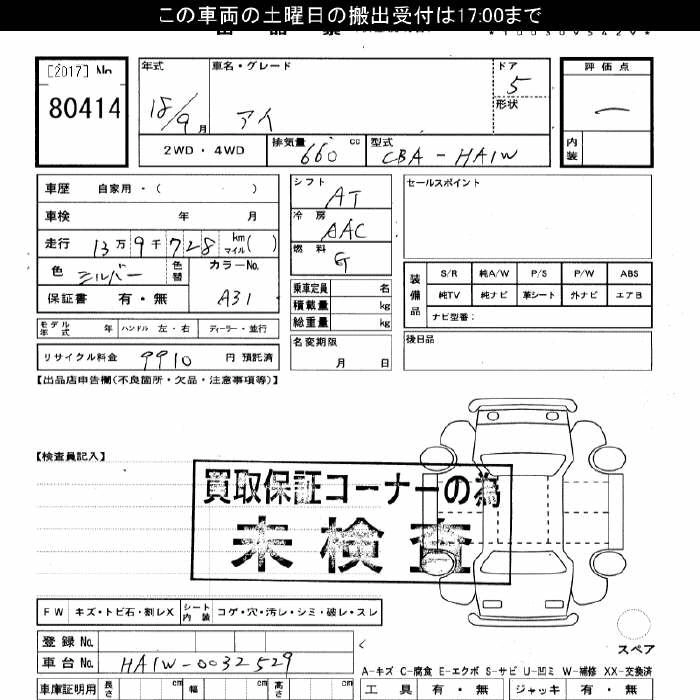 この車両の土曜日の搬出受付は17:00まで
[2017] No
80414
年式
18/9 月
車名・グレード
アイ
ドア
5
形状
評価点
ー
内装
2WD・4WD
排気量 660 cc
型式 CBA-HA1W
車歴 自家用・( )
車検 年 月
走行 13万9千728 km マイル( )
色 シルバー 色替
カラーNo. A31
保証書 有・無
モデル年式 年 ハンドル 左・右 ディーラー・並行
リサイクル料金 9910 円 預託済
シフト AT
冷房 AAC
燃料 G
乗車定員 名
積載量 kg
総重量 kg
名変期限
月 日
セールスポイント
装備品
S/R 純A/W P/S P/W ABS
純TV 純ナビ 革シート 外ナビ エアB
ナビ型番:
後日品
【出品店申告欄(不良箇所・欠品・注意事項等)】
【検査員記入】
買取保証コーナーの為
未検査
FW キズ・トビ石・割レX シート内装 コゲ・穴・汚レ・シミ・破レ・スレ
スペア
登録No.
車台No. HA1W-0032529
A-キズ C-腐食 E-エクボ S-サビ U-凹ミ W-補修 XX-交換済
車庫証明用 長さ cm 幅 cm 高さ cm
工具 有・無 ジャッキ 有・無